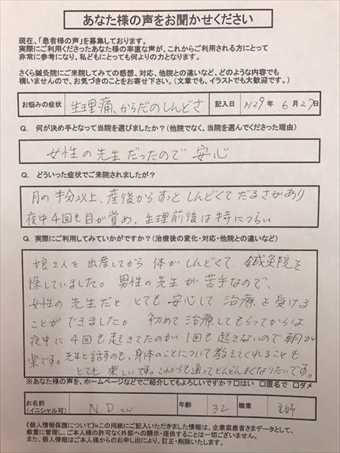 あなた様の声をお聞かせください
現在、「患者様の声」を募集しております。
実際にご利用くださったあなた様の率直な声が、これからご利用される方にとって
非常に参考になり、私どもにとっても何よりの力となります。
さくら鍼灸院にご来院してみての感想、対応、他院との違いなど、どのような内容でも
構いませんので、お気づきのことをお寄せ下さい。(文章でも、イラストでも大歓迎です。)
お悩みの症状 生理痛、からだのしんどさ 記入日 H29年 6月27日
Q. 何が決め手となって当院を選びましたか?(他院でなく、当院を選んでくださった理由)
女性の先生だったので安心
Q. どういった症状でご来院されましたが?
月の半分以上、産後からずっとしんどくてだるさがあり
夜中4回も目が覚め、生理前後は特につらい
Q. 実際にご利用してみていかがですか?(治療後の変化・対応・他院との違いなど)
娘2人を出産してから体がしんどくて、鍼灸院を
探していました。男性の先生が苦手なので、
女性の先生だと とても安心して治療を受ける
ことができました。初めて治療してもらってからは
夜中に4回も起きてたのが1回も起きないので朝が
楽です。先生と話すのも、身体のことについて教えてくれることも
とても楽しいです。これからも通ってどんどんよくなりたいです。
※あなた様の声を、ホームページなどでご紹介してもよろしいですか? □はい □匿名で □ダメ
お名前
(イニシャル可) N.D 年齢 32 職業 主婦
《個人情報保護について》※この用紙にご記入いただきました情報は、企業並患者さまデータとして、
厳重に管理し、ご本人様の許可なく外部への開示・提供することは一切ございません。
また、個人情報はご本人様からのお申し出により、訂正・削除いたします。